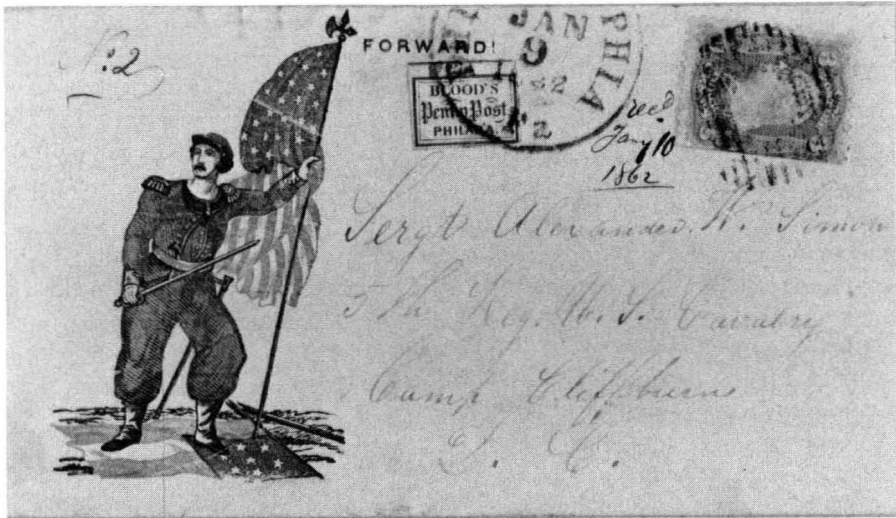 No. 2
FORWARD!
BLOOD'S
Penny Post
PHILADA.
JAN
9
1862
PHILA
recd
Jany 10
1862
Sergt Alexander W. Simon
5th Reg. U. S. Cavalry
Camp Cliffburne
D. C.